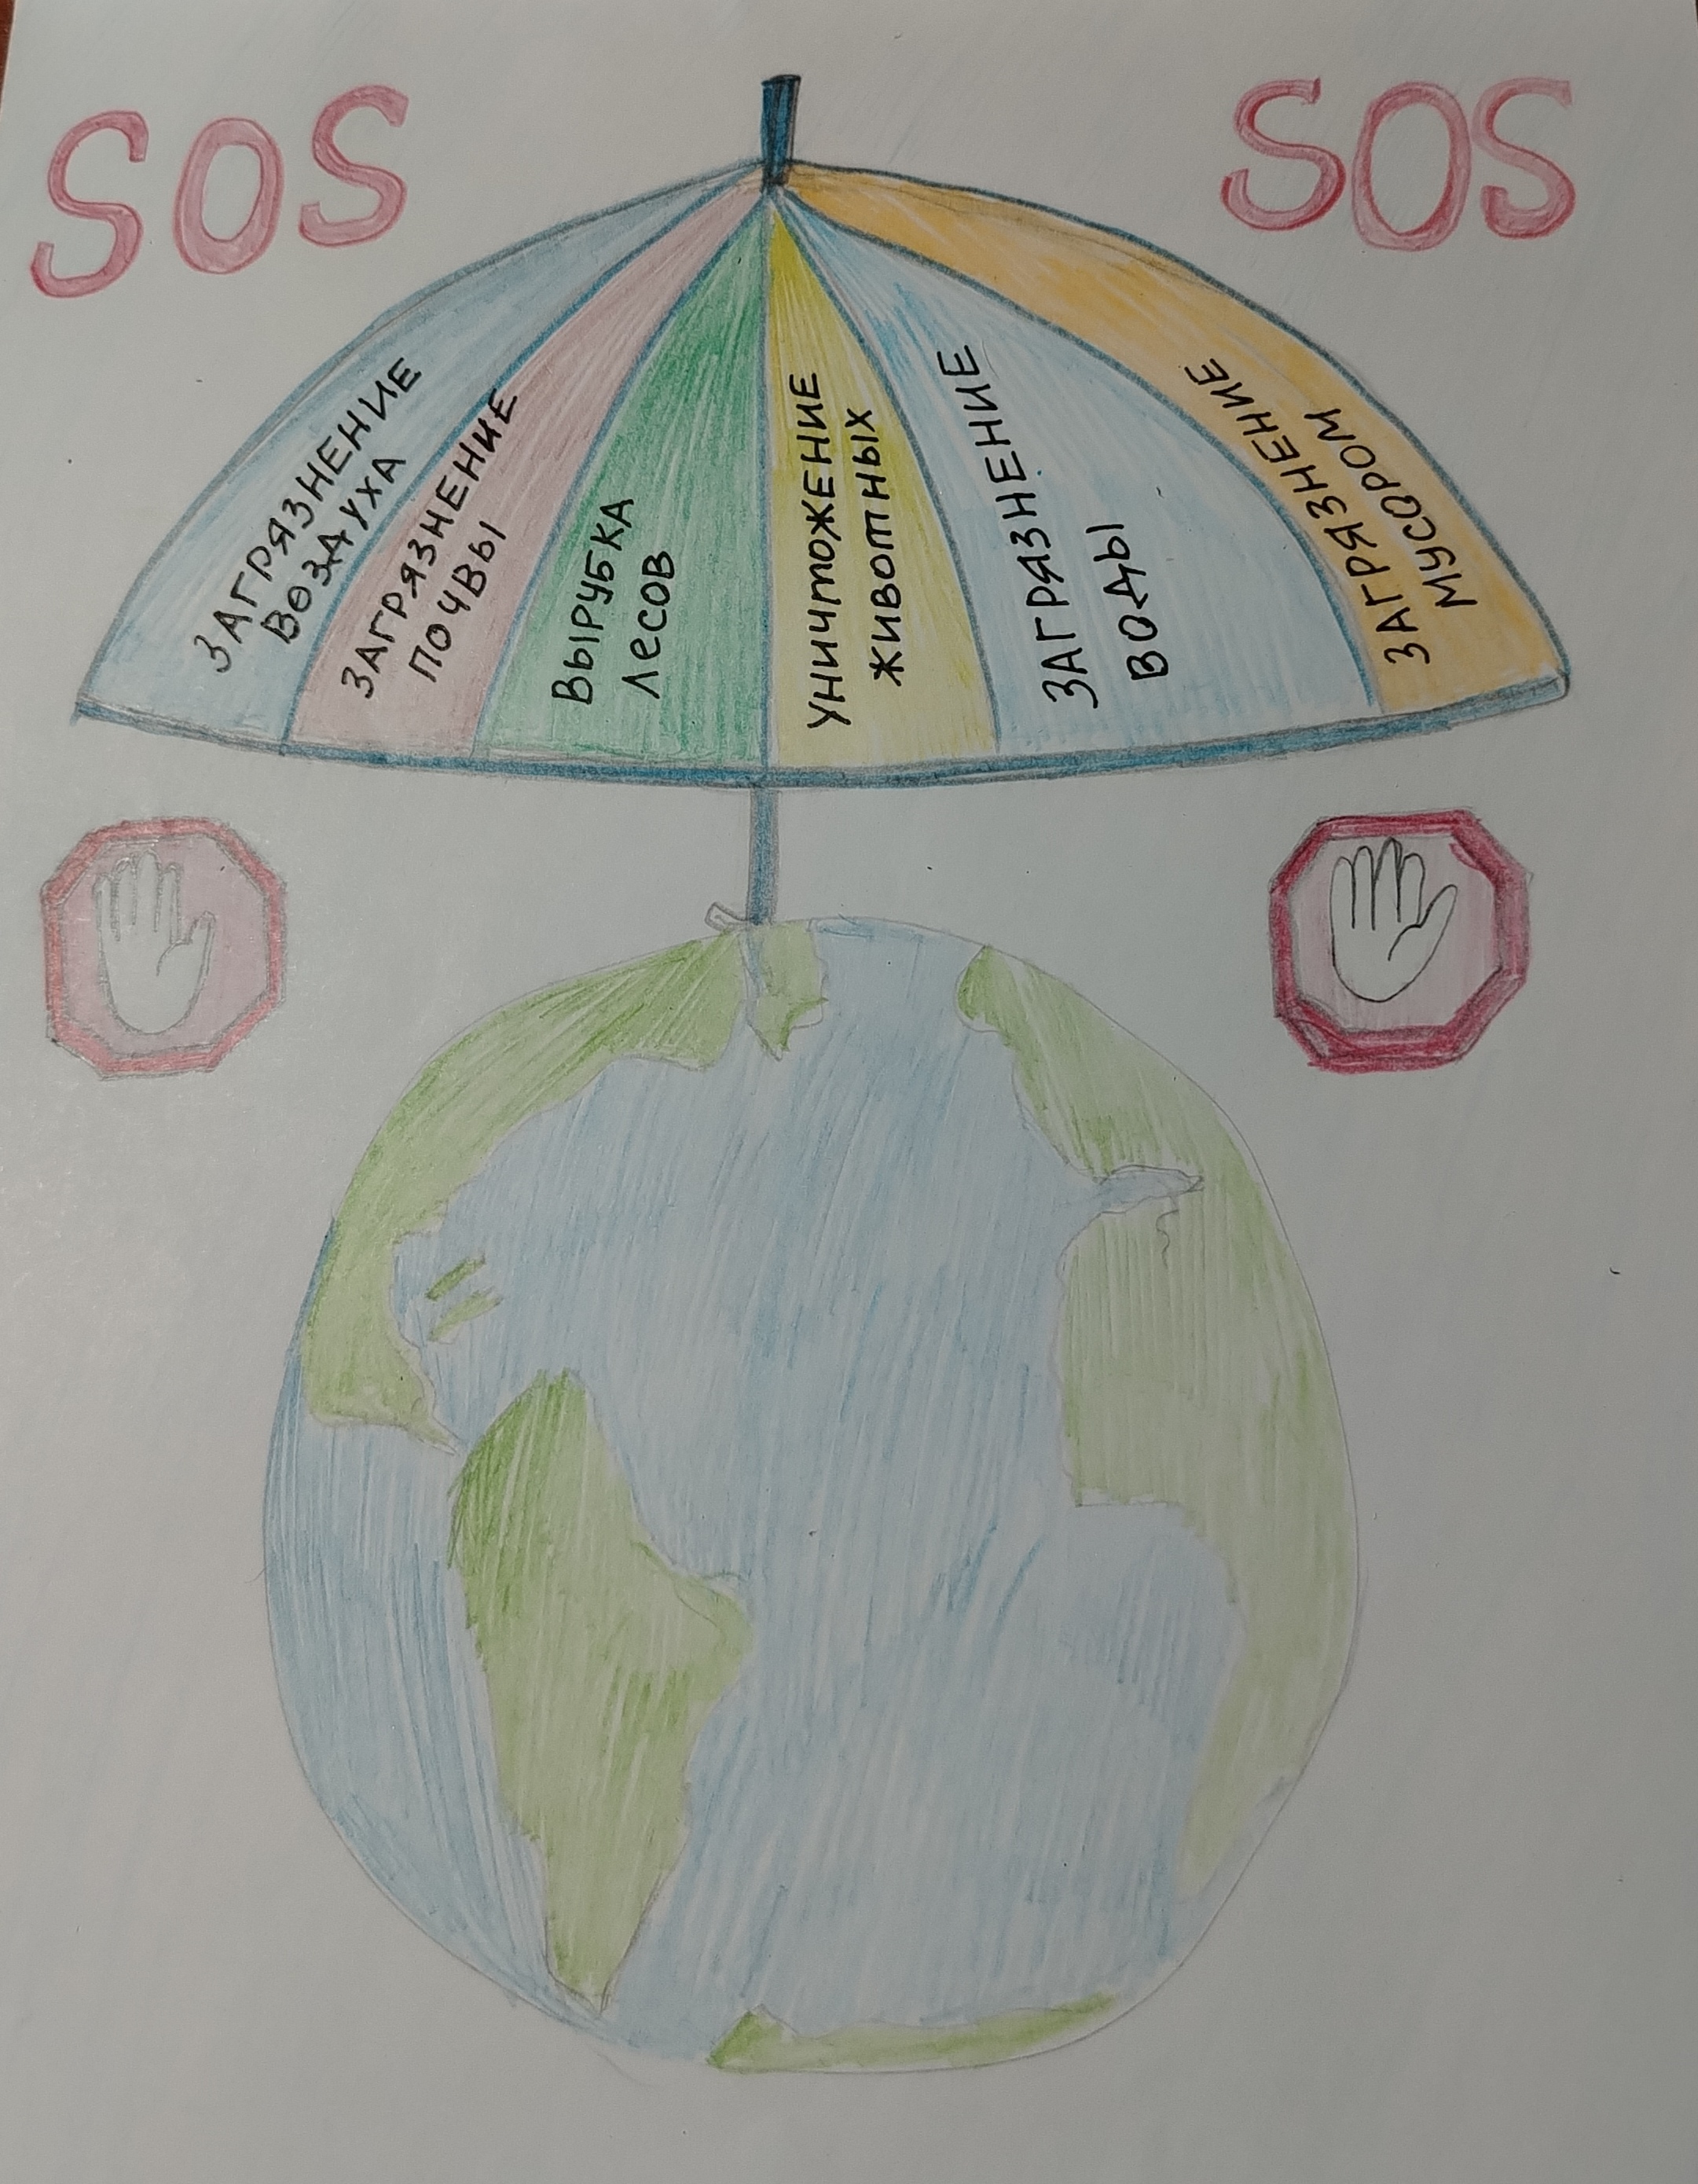 SOS
SOS
ЗАГРЯЗНЕНИЕ
ВОЗДУХА
ЗАГРЯЗНЕНИЕ
ПОЧВЫ
ВЫРУБКА
ЛЕСОВ
УНИЧТОЖЕНИЕ
ЖИВОТНЫХ
ЗАГРЯЗНЕНИЕ
ВОДЫ
ЗАГРЯЗНЕНИЕ
МУСОРОМ